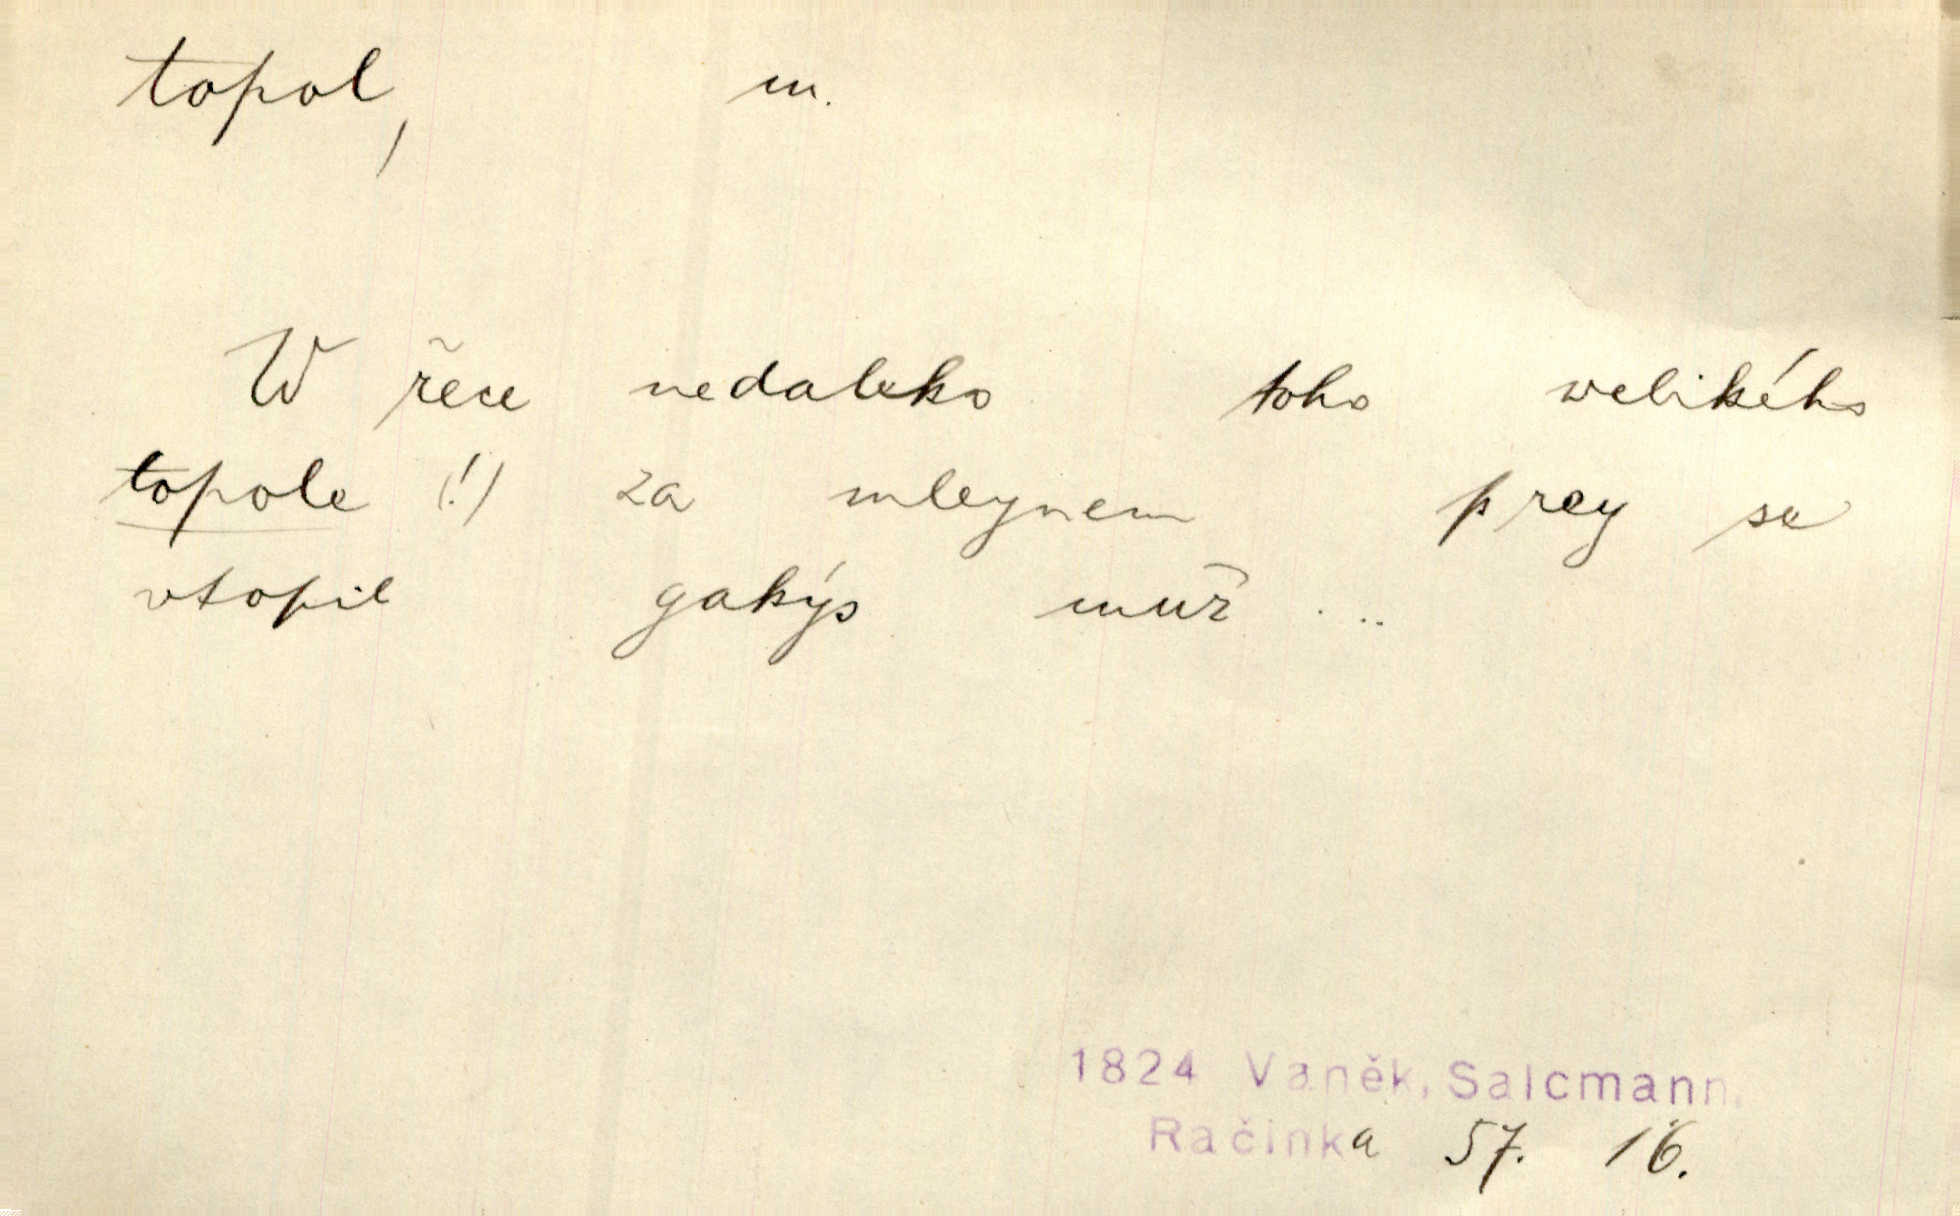 topol, m.
W řece nedaleko toho welikého
topole (!) za mleynem prey se
vtopil gakýs muž ...
1824 Vaněk, Salcmann.
Račinka 57. 16.